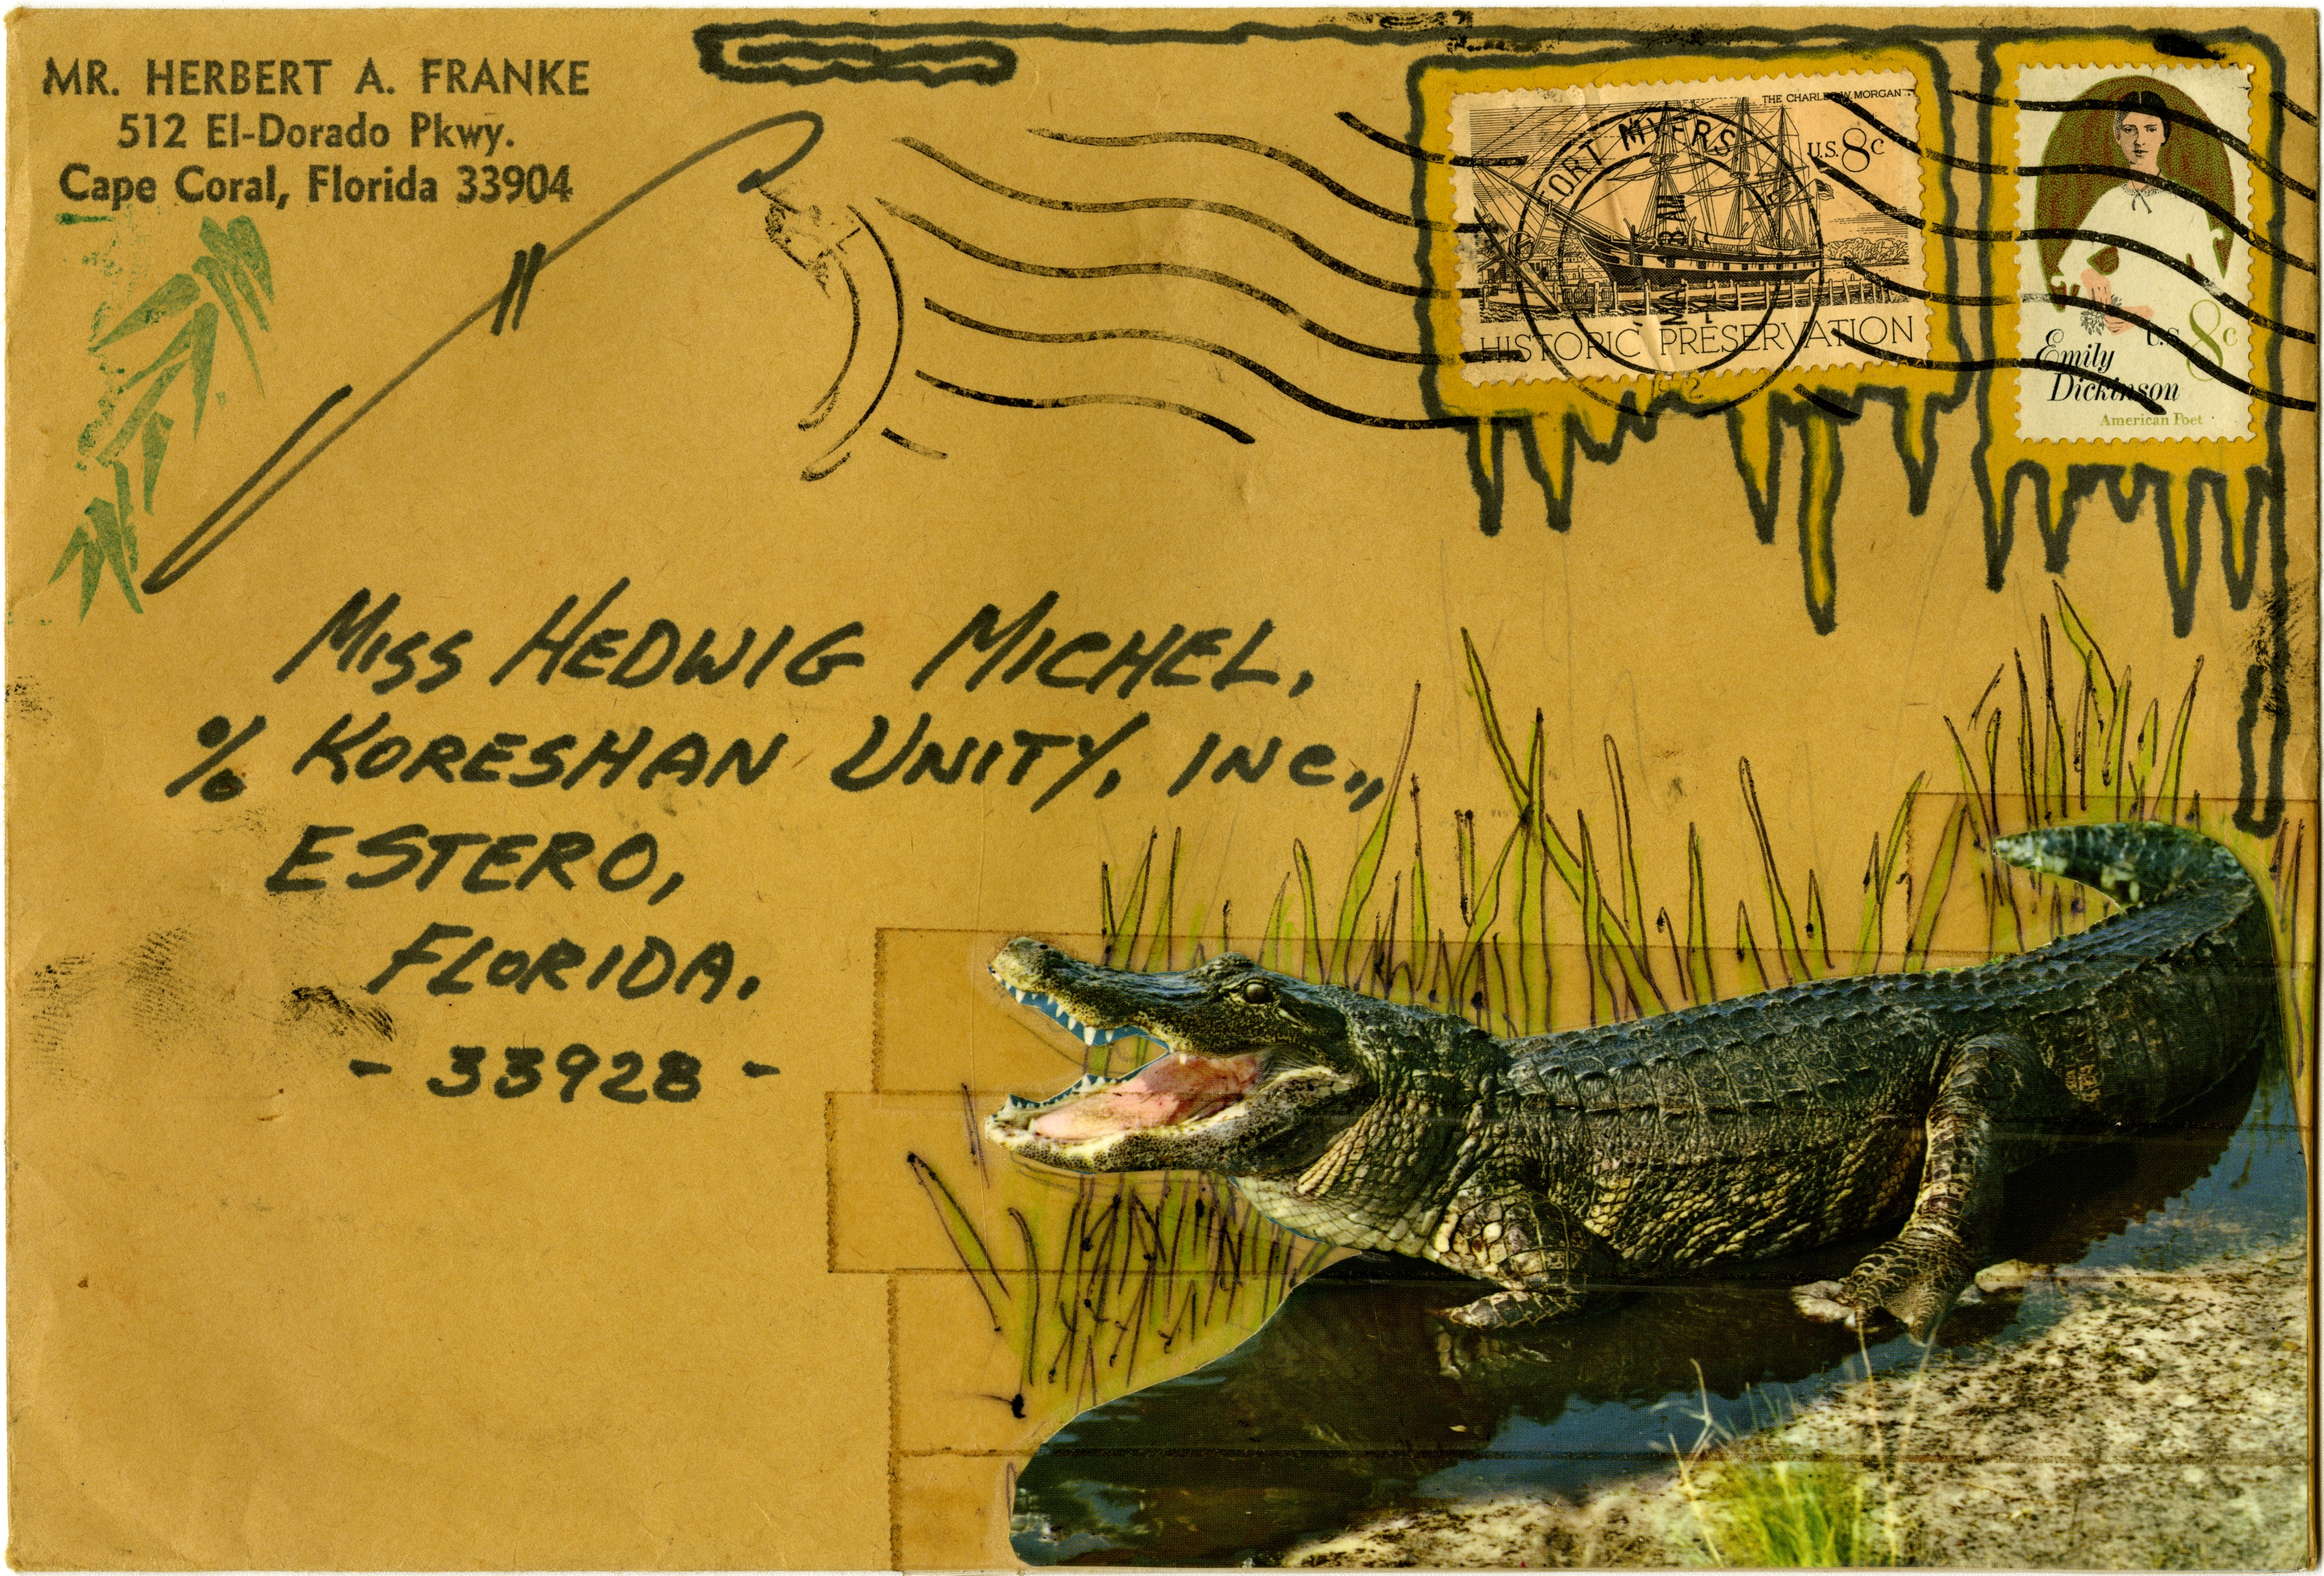 MR. HERBERT A. FRANKE
512 El-Dorado Pkwy.
Cape Coral, Florida 33904
THE CHARLES W. MORGAN
U.S. 8c
HISTORIC PRESERVATION
FORT MYERS
U.S. 8c
Emily
Dickinson
American Poet
MISS HEDWIG MICHEL,
% KORESHAN UNITY, INC.,
ESTERO,
FLORIDA.
- 33928 -